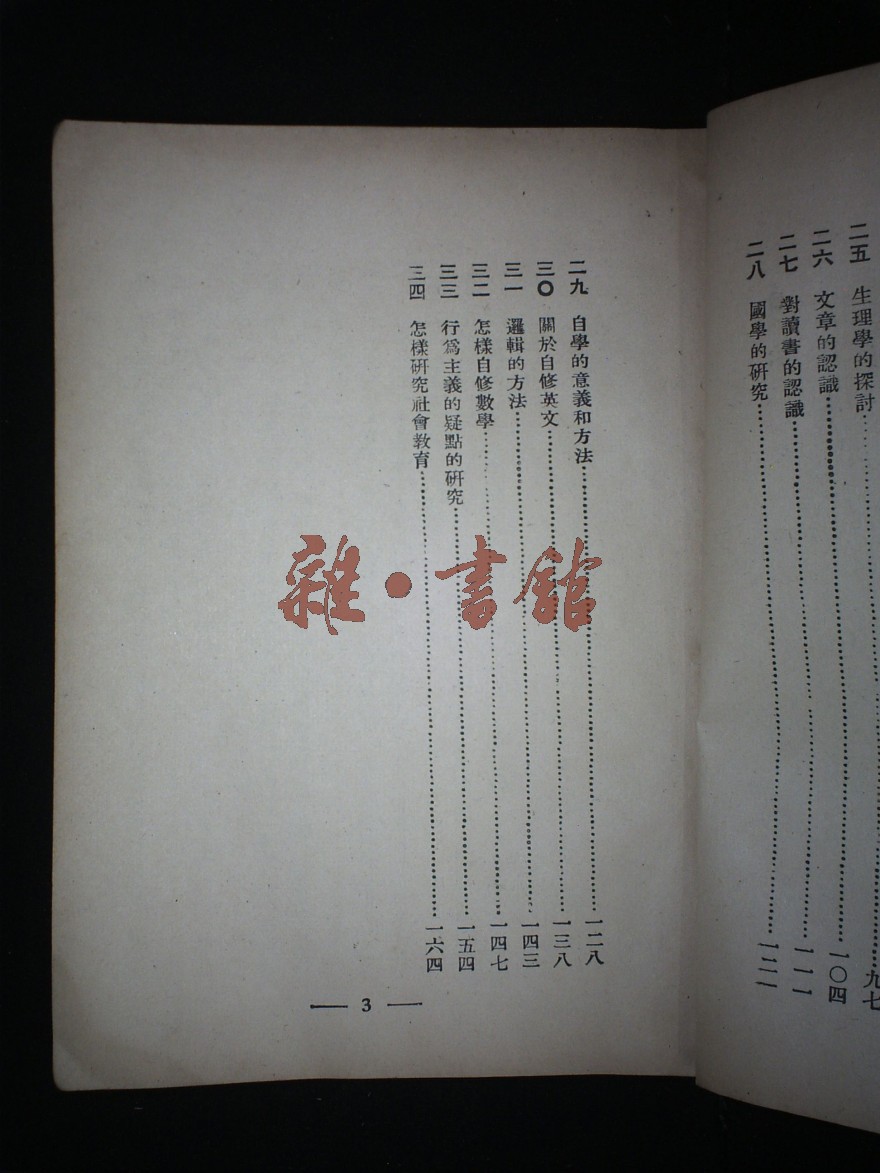 二五　生理學的探討……九七
二六　文章的認識……一〇四
二七　對讀書的認識……一一一
二八　國學的研究……一二一
二九　自學的意義和方法……一二八
三〇　關於自修英文……一三八
三一　邏輯的方法……一四三
三二　怎樣自修數學……一四七
三三　行為主義的疑點的研究……一五四
三四　怎樣研究社會教育……一六四
— 3 —
雜·書館